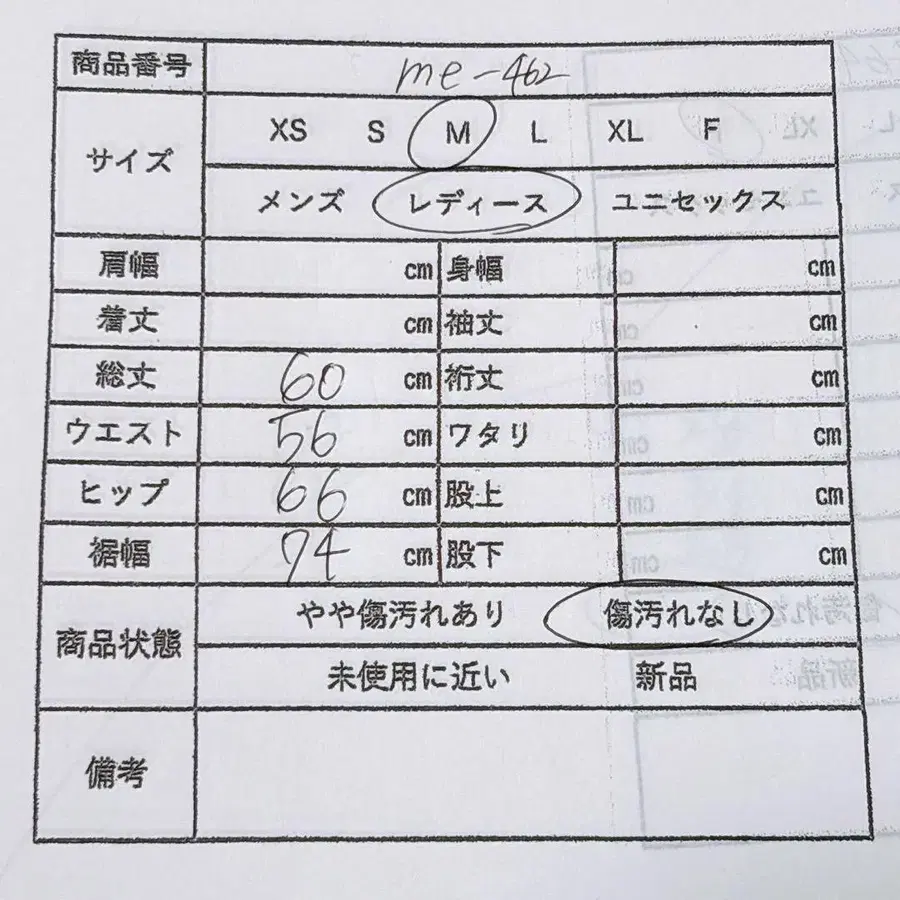 商品番号 me-462
サイズ XS S M L XL F
メンズ レディース ユニセックス
肩幅 cm 身幅 cm
着丈 cm 袖丈 cm
総丈 60 cm 裄丈 cm
ウエスト 56 cm ワタリ cm
ヒップ 66 cm 股上 cm
裾幅 74 cm 股下 cm
商品状態 やや傷汚れあり 傷汚れなし
未使用に近い 新品
備考